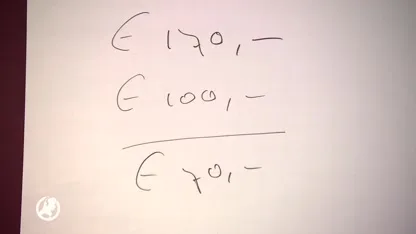 € 170,-
€ 100,-
€ 70,-